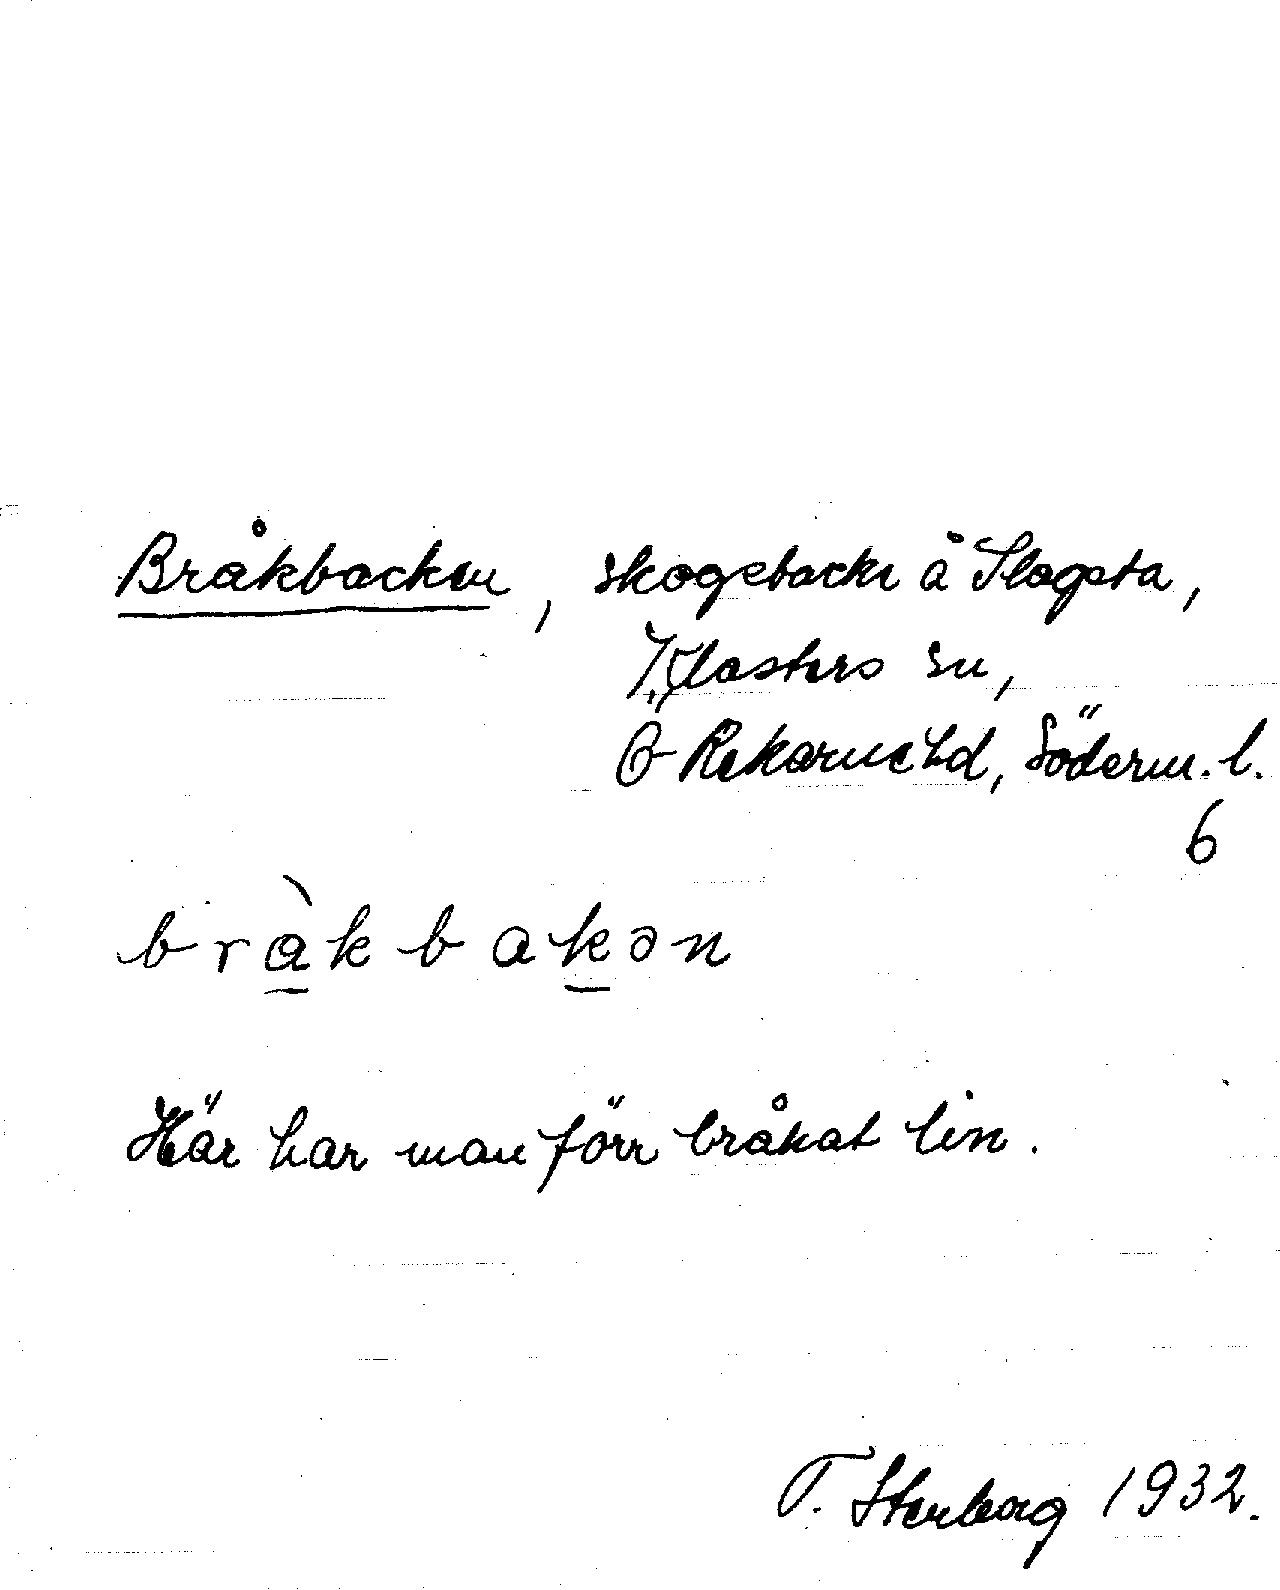 Bråkbacken, skogsbacke å Slagsta,
Klosters sn,
Ö Rekarne hd, Söderm. l.
6
bràkbakən
Här har man förr bråkat lin.
T. Stenberg 1932.